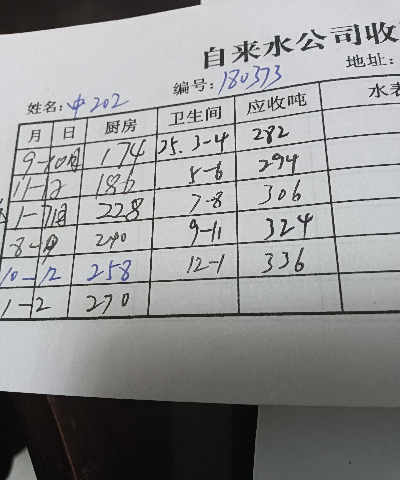 自来水公司收
姓名:中202 编号:180373 地址:
月 日 厨房 卫生间 应收吨 水表
9-10月 174 25.3-4 282
11-12 186 5-6 294
1-7月 228 7-8 306
8-9 240 9-11 324
10-12 258 12-1 336
1-2 270